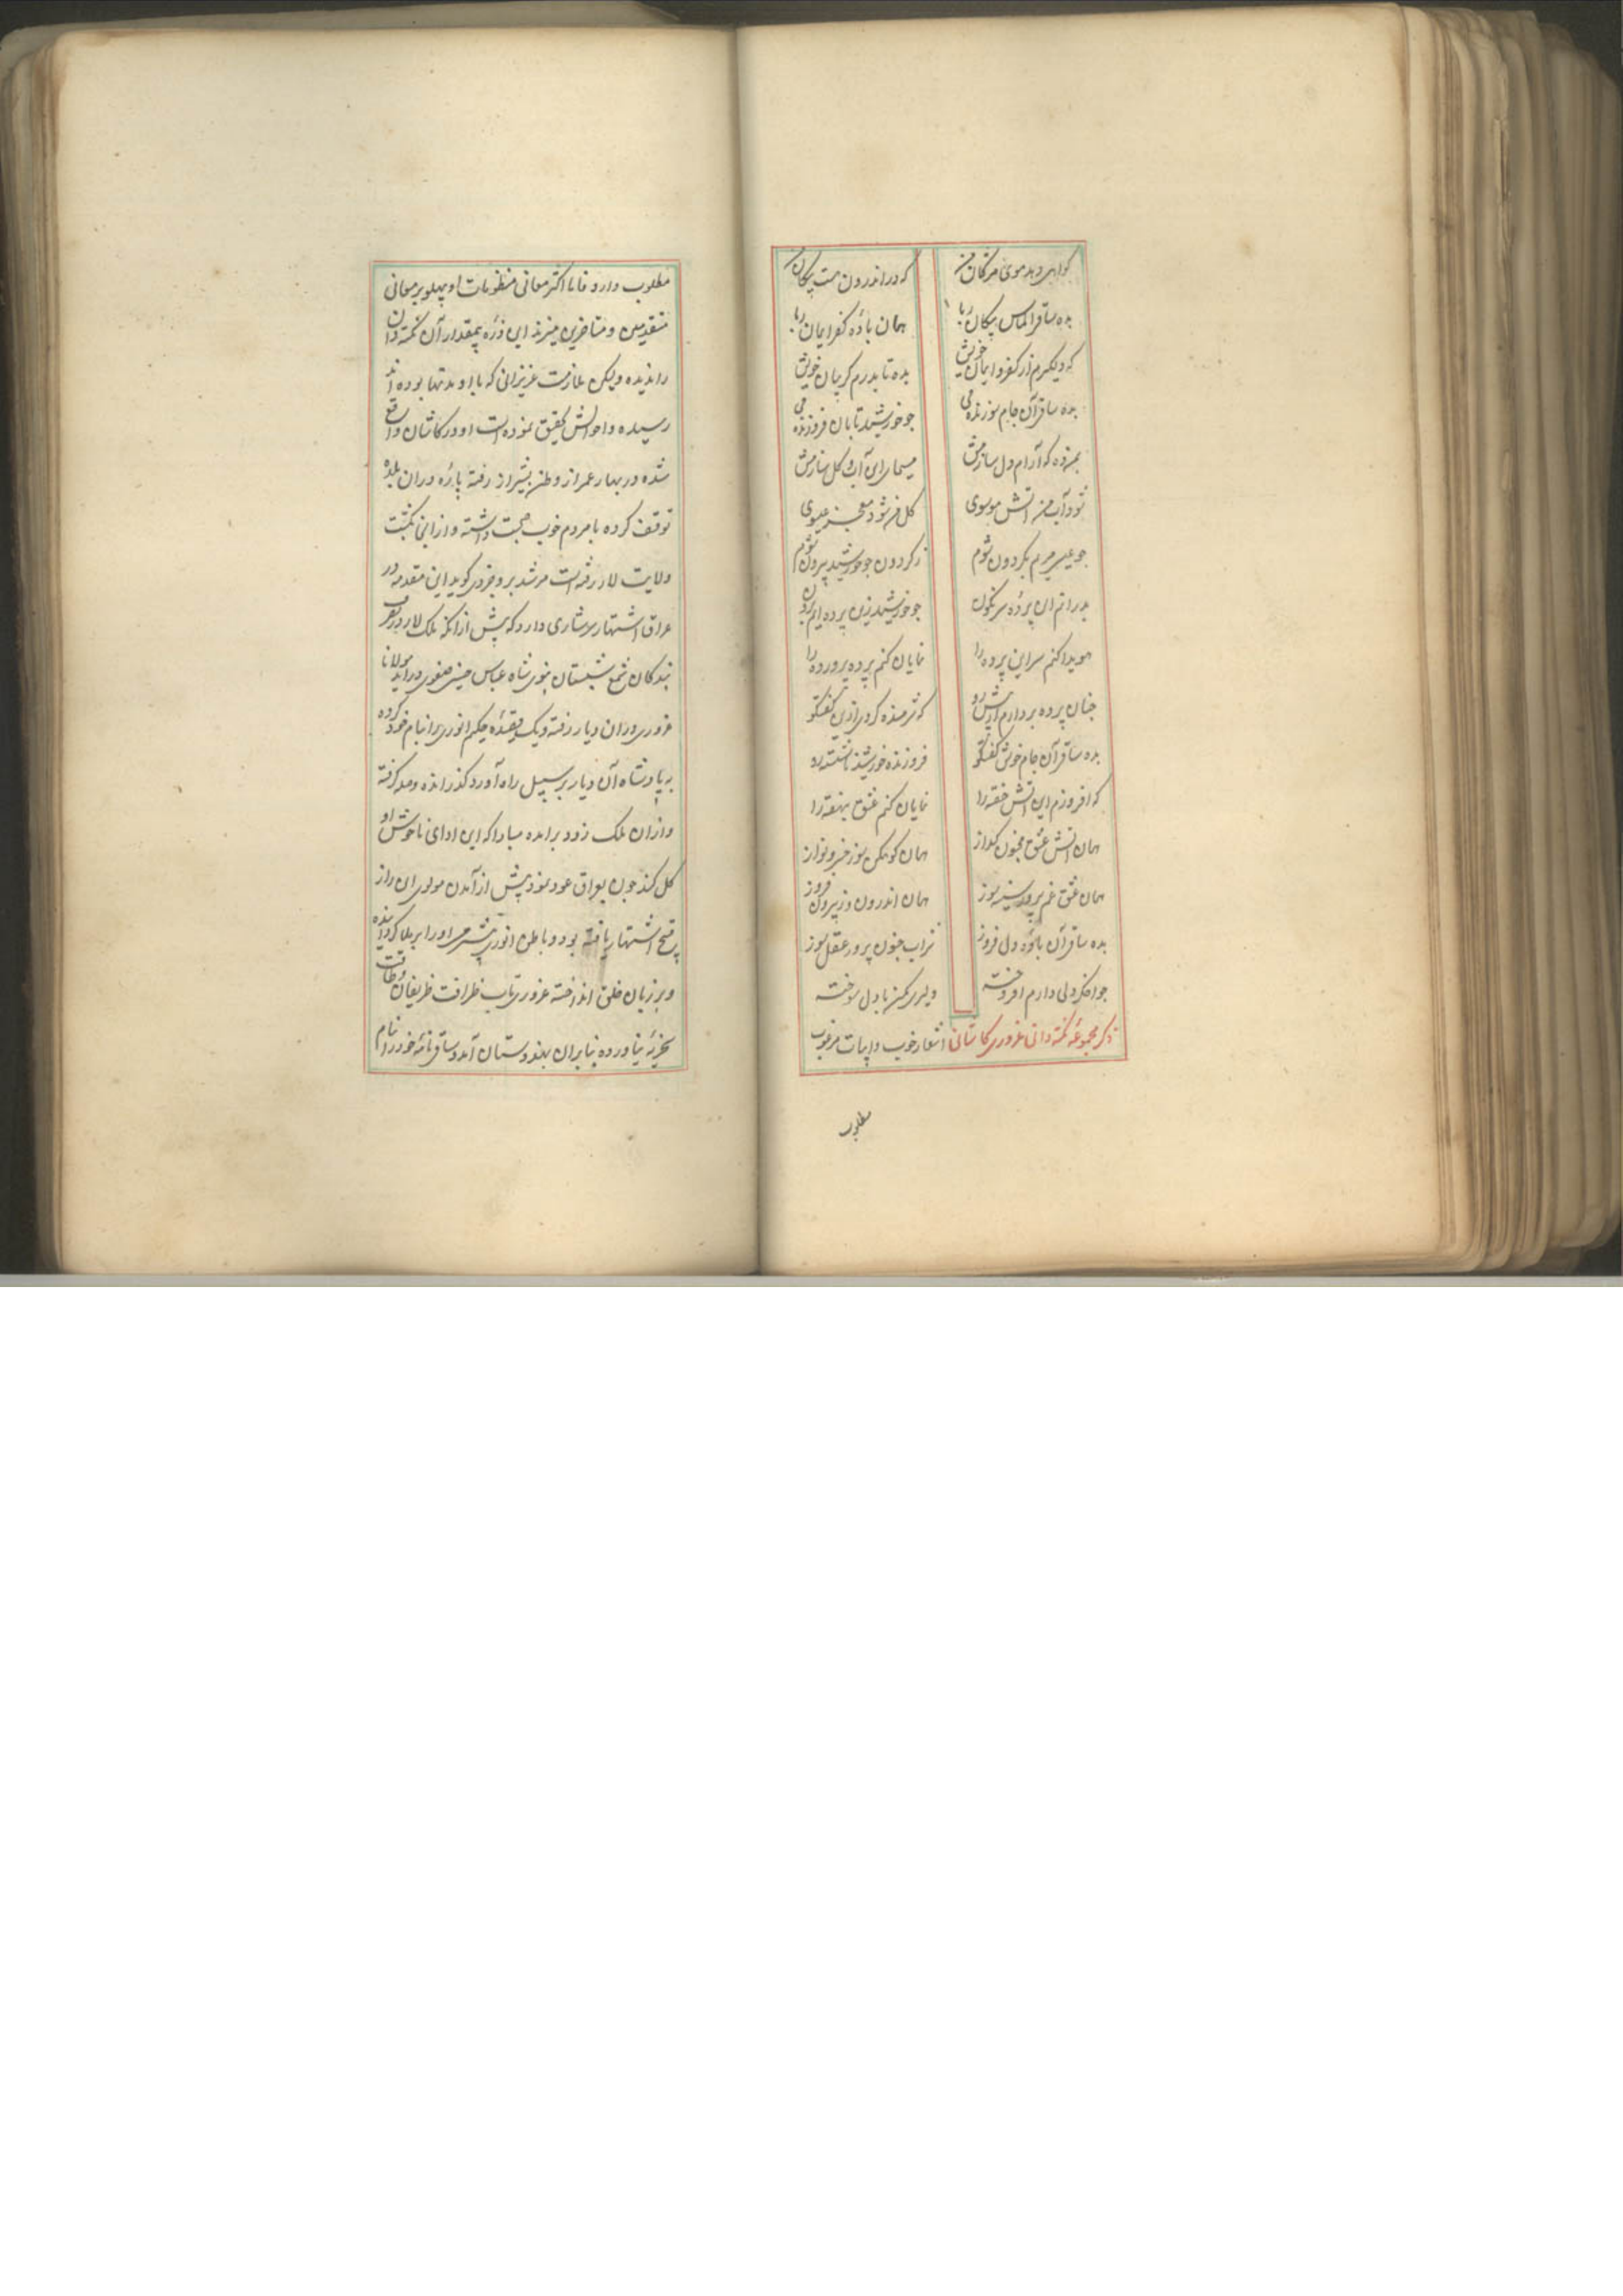 گواهی دهد موی مژگان من که در اندرون هست پیکان
بده ساقی الماس پیکان ربا همان بادهٔ کفر ایمان ربا
که دلگیرم از کفر و ایمان خویش بده تا بدرم گریبان خویش
بده ساقی آن جام سوزنده می جو خورشید تابان فروزنده می
بمن ده که آرام دل سازمش مسیمای این آب و گل سازمش
شود آب من آتش موسوی گل من شود معجز عیسوی
جو عیسی مریم بگردون شوم ز گردون جو خورشید بیرون شوم
بدرانم این پردهٔ سرنگون جو خورشید زین پرده ایم برون
هویدا کنم سر این پرده را نمایان کنم پرده پرورده را
جنان پرده بردارم از پیش رو که شرمنده گردی ازین گفتگو
بده ساقی آن جام خوش گفتگو فروزنده خورشید ناشسته رو
که افروزم این آتش خفته را نمایان کنم عشق بنهفته را
همان آتش عشق مجنون گداز همان کوهکن سوز خسرو نواز
همان عشق غم پرور سینه سوز همان اندرون وز بیرون فروز
بده ساقی آن بادهٔ دل فروز شراب جنون پرور عقل سوز
جو اخکر دلی دارم افروخته دلیری مکن با دل سوخته
ذکر مجموعهٔ نکته دانی غروری کاشانی اشعار خوب و ابیات مرغوب
مطلوب
مطلوب دارد فاما اکثر معانی منظومات او پهلو بر معانی
متقدمین و متاخرین میزند این ذرهٔ بیمقدار آن نکته دان
را ندیده ولیکن بملازمت عزیزانی که با او مدتها بوده اند
رسیده و احوالش تحقیق نموده است او در کاشان واقع
شده در بهار عمر از وطن بشیراز رفته پارهٔ دران بلده
توقف کرده با مردم خوب صحبت داشته و از انجا بگشت
ولایت لار رفته است مرشد بروجردی گوید این مقدمه در
عراق اشتهار سرشاری دارد که پیش ازانکه ملک لار بتصرف
بندگان شمع شبستان نبوی شاه عباس حسینی صفوی دراید مولانا
غروری دران دیار رفته و یک قصیدهٔ حکیم انوری را بنام خود کرده
به پادشاه آن دیار بر سبیل راه آورد گذرانده و صله گرفته
و ازان ملک زود برامده مبادا که این ادای ناخوش او
گل کند جون بعراق عود نمود پیش از آمدن مولوی این راز
اشتهار یافته بود و باطن انوری بیشرمی او را بر ملا گردانیده
و بر زبان خلق انداخته غروری تاب ظرافت ظریفان
نیاورده بنابران بهندوستان آمد و ساقی نامهٔ خود را بنام